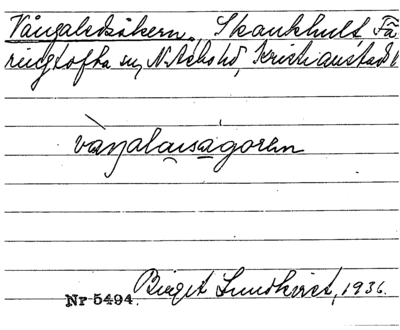 Vångaledsåkern, Skankhult, Fä-
ringtofta sn, N. Åsbo hd, Kristianstads l.
våŋalausågoren
Birgit Lundkvist, 1936.
Nr 5494.